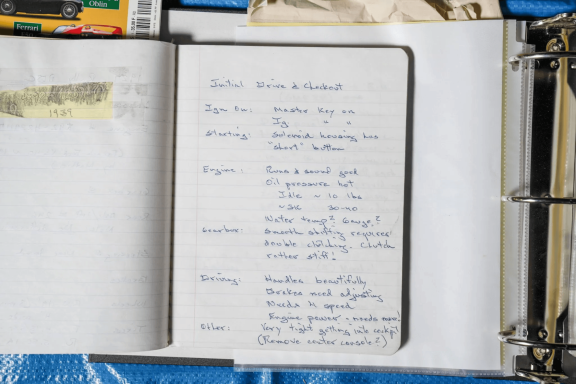 Oblin
Ferrari
1989
Initial Drive & Checkout
Ign On: Master Key on
Ig. " "
Starting: Solenoid housing has
"start" button
Engine: Runs & sound good
Oil pressure hot
Idle ~ 10 lbs
30-40
Water temp? Gauge?
Gearbox: Smooth shifting requires
double clutching. Clutch
rather stiff!
Driving: Handles beautifully
Brakes need adjusting
Needs speed
Engine power - needs more!
Other: Very tight getting into cockpit
(Remove center console?)